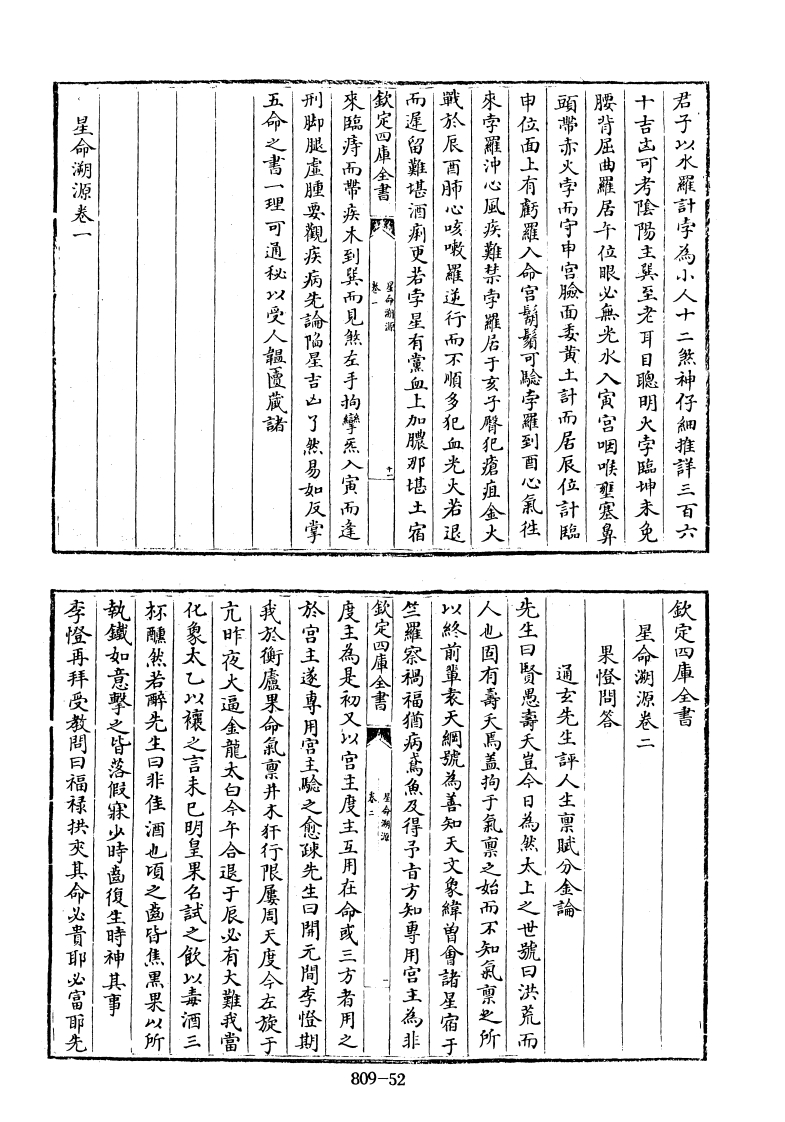 君子以水羅計孛為小人十二煞神仔細推詳三百六
十吉凶可考陰陽主巽至老耳目聰明火孛臨坤未免
腰背屈曲羅居午位眼必無光水入寅宮咽喉壅塞鼻
頭帶赤火孛而守申宮臉面委黃土計而居辰位計臨
申位面上有虧羅入命宮鬍鬚可驗孛羅到酉心氣徃
來孛羅沖心風疾難禁孛羅居于亥子臀犯瘡疽金火
戰於辰酉肺心咳嗽羅逆行而不順多犯血光火若退
而遲留難堪酒痢更若孛星有黨血上加膿那堪土宿
欽定四庫全書
星命溯源
卷一
十二
來臨痔而帶疾木到巽而見煞左手拘攣炁入寅而逢
刑脚腿虛腫要觀疾病先論陷星吉凶了然易如反掌
五命之書一理可通秘以受人韞匵蔵諸
星命溯源卷一
欽定四庫全書
星命溯源卷二
果憕問答
通玄先生評人生禀賦分金論
先生曰賢愚壽夭豈今日為然太上之世號曰洪荒而
人也固有壽夭焉盖拘于氣禀之始而不知氣禀之所
以終前輩袁天綱號為善知天文象緯曾會諸星宿于
竺羅察禍福猶病鳶魚及得予言方知專用宮主為非
欽定四庫全書
星命溯源
卷二
一
度主為是初又以宮主度主互用在命或三方者用之
於宮主遂專用宮主驗之愈疎先生曰開元間李憕期
我於衡廬果命氣禀井木犴行限屢周天度今左旋于
亢昨夜火逼金龍太白今午合退于辰必有大難我當
化象太乙以禳之言未已明皇果召試之飲以毒酒三
杯醺然若醉先生曰非佳酒也頃之齒皆焦黒果以所
執鐵如意擊之皆落假寐少時齒復生時神其事
李憕再拜受教問曰福禄拱夾其命必貴耶必富耶先
809-52